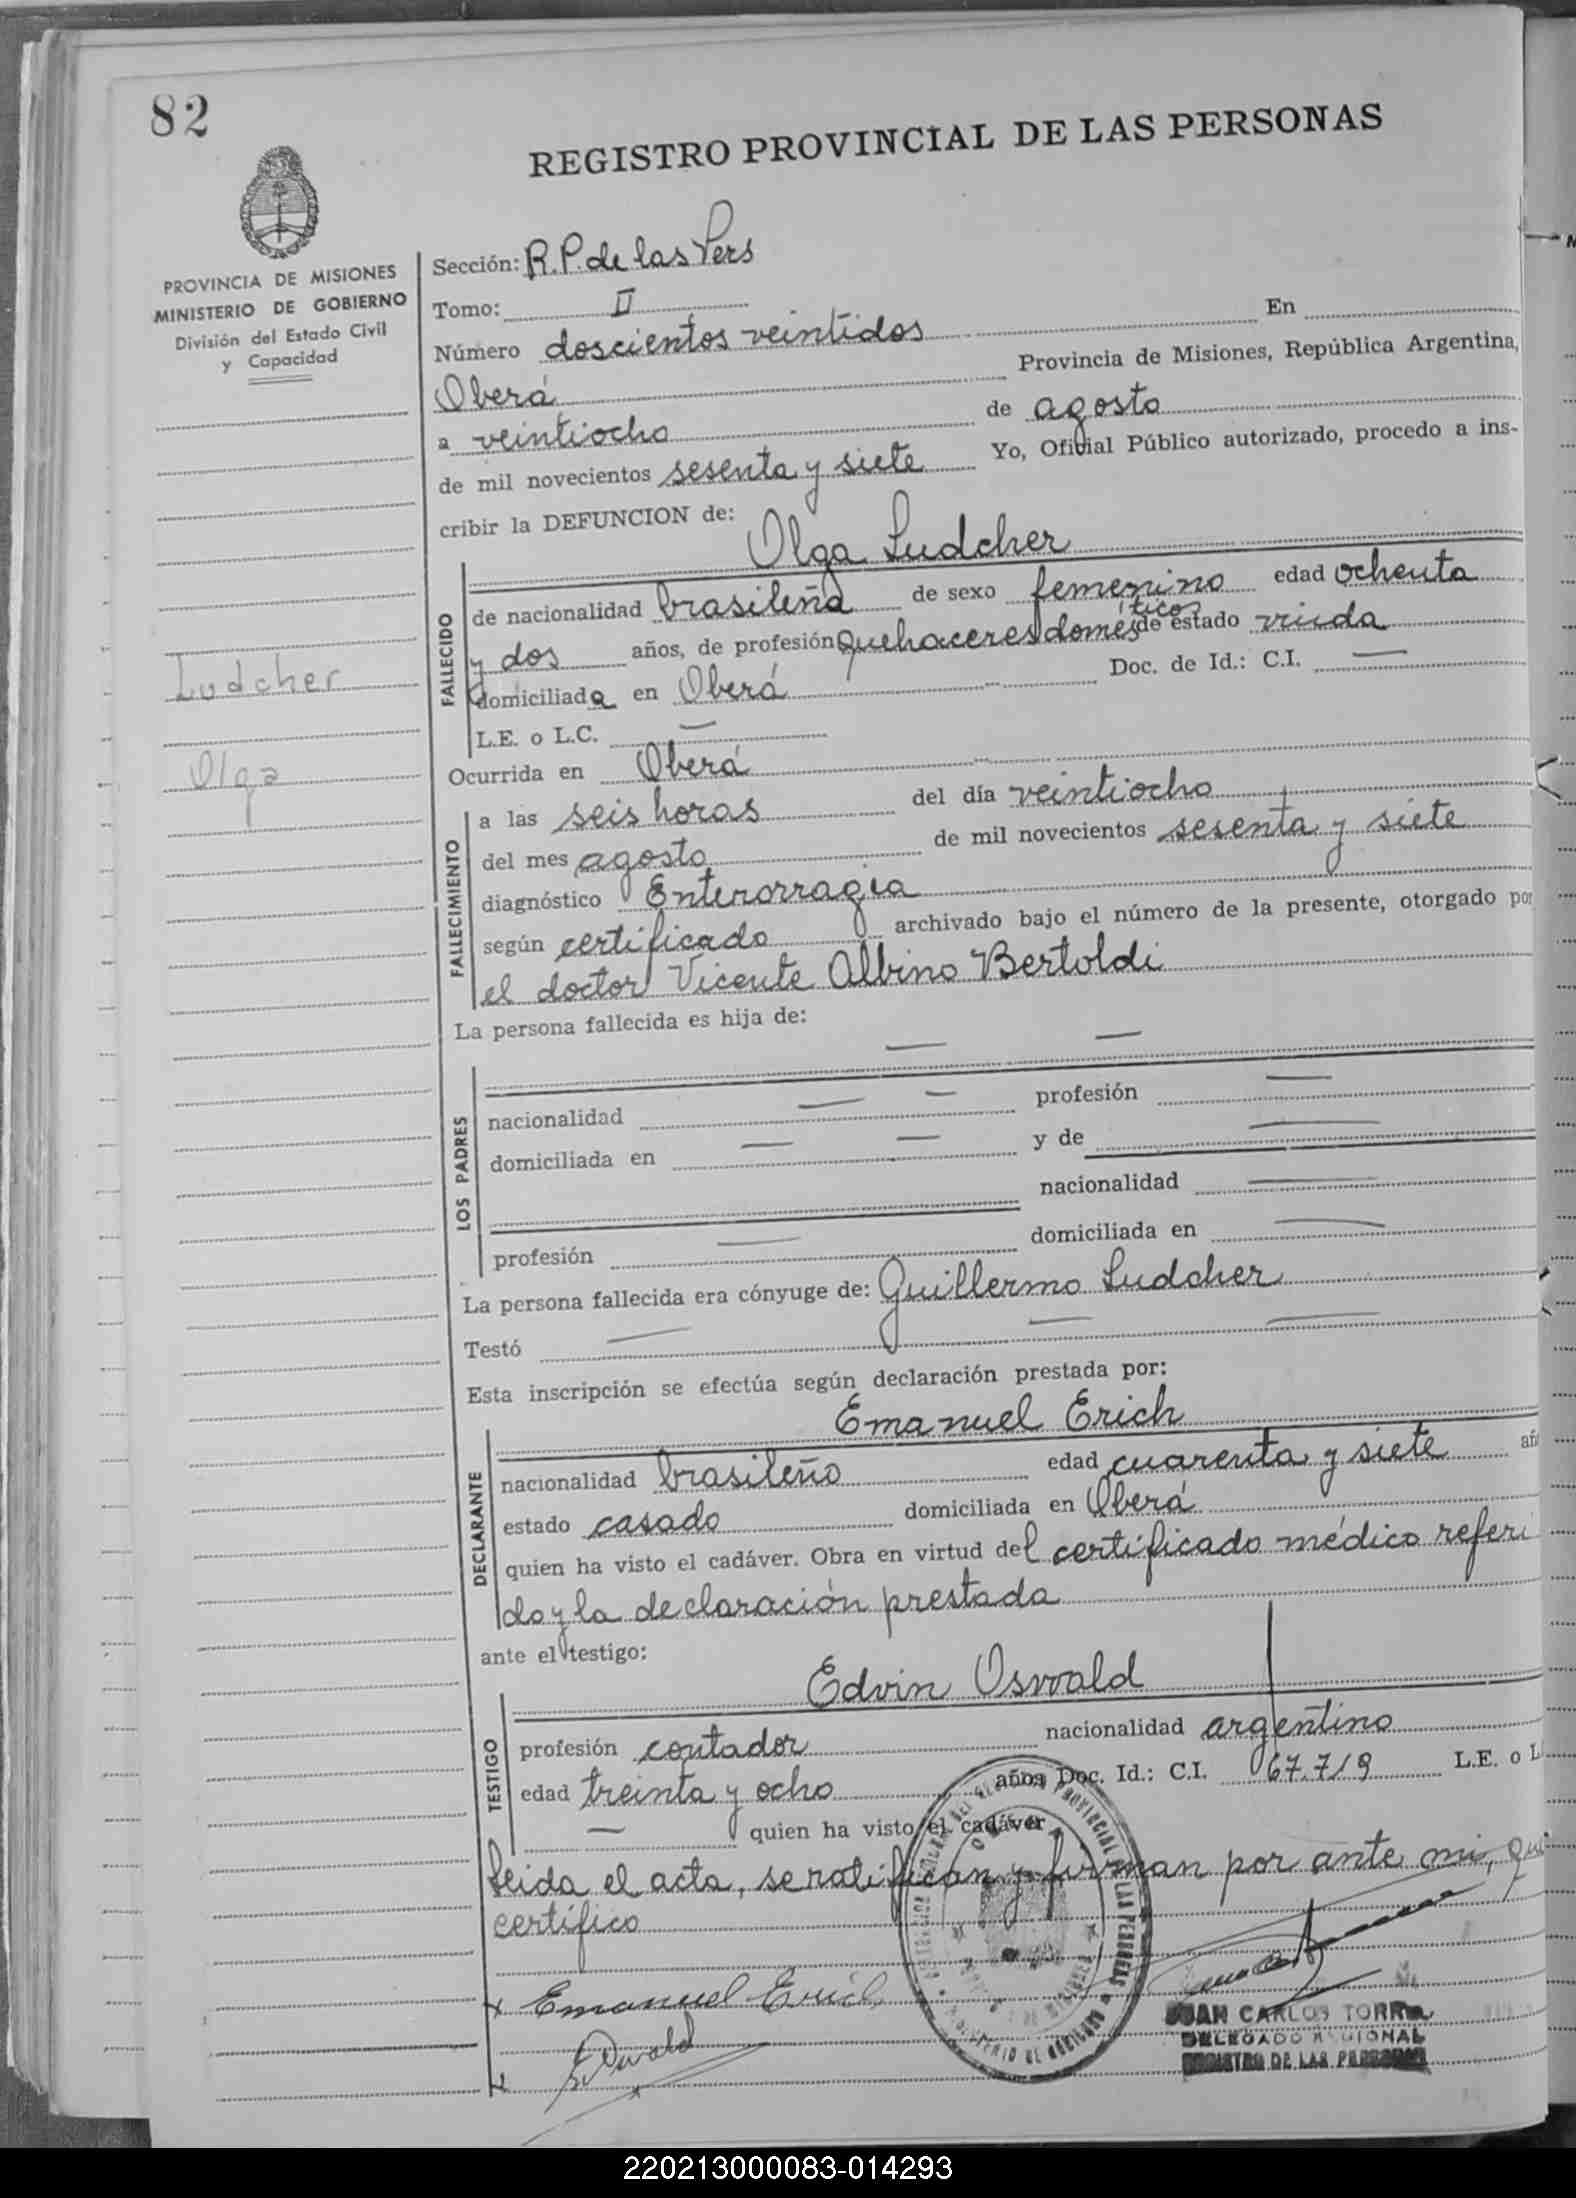 82
REGISTRO PROVINCIAL DE LAS PERSONAS
PROVINCIA DE MISIONES
MINISTERIO DE GOBIERNO
División del Estado Civil
y Capacidad
Ludcher
Olga
Sección: R.P. de las Pers
Tomo: II
Número doscientos veintidos En
Oberá Provincia de Misiones, República Argentina,
a veintiocho de agosto
de mil novecientos sesenta y siete Yo, Oficial Público autorizado, procedo a ins-
cribir la DEFUNCION de:
Olga Ludcher
FALLECIDO
de nacionalidad brasileña de sexo femenino edad ochenta
y dos años, de profesión quehaceres domésticos de estado viuda
domiciliada en Oberá Doc. de Id.: C.I. —
L.E. o L.C. —
Ocurrida en Oberá
FALLECIMIENTO
a las seis horas del día veintiocho
del mes agosto de mil novecientos sesenta y siete
diagnóstico Enterorragia
según certificado archivado bajo el número de la presente, otorgado por
el doctor Vicente Albino Bertoldi
La persona fallecida es hija de:
— —
LOS PADRES
nacionalidad — — profesión —
domiciliada en — — y de —
nacionalidad —
profesión — domiciliada en —
La persona fallecida era cónyuge de: Guillermo Ludcher
Testó — — —
Esta inscripción se efectúa según declaración prestada por:
Emanuel Erich
DECLARANTE
nacionalidad brasileño edad cuarenta y siete añ
estado casado domiciliada en Oberá
quien ha visto el cadáver. Obra en virtud del certificado médico referi
do y la declaración prestada
ante el testigo:
Edvin Oswald
TESTIGO
profesión contador nacionalidad argentino
edad treinta y ocho años Doc. Id.: C.I. 67.719 L.E. o L
— quien ha visto el cadáver
Leida el acta, se ratifican y firman por ante mi, que
certifico
x Emanuel Erich
x E. Oswald
JUAN CARLOS TORR
DELEGADO REGIONAL
REGISTRO DE LAS PERSONAS
220213000083-014293